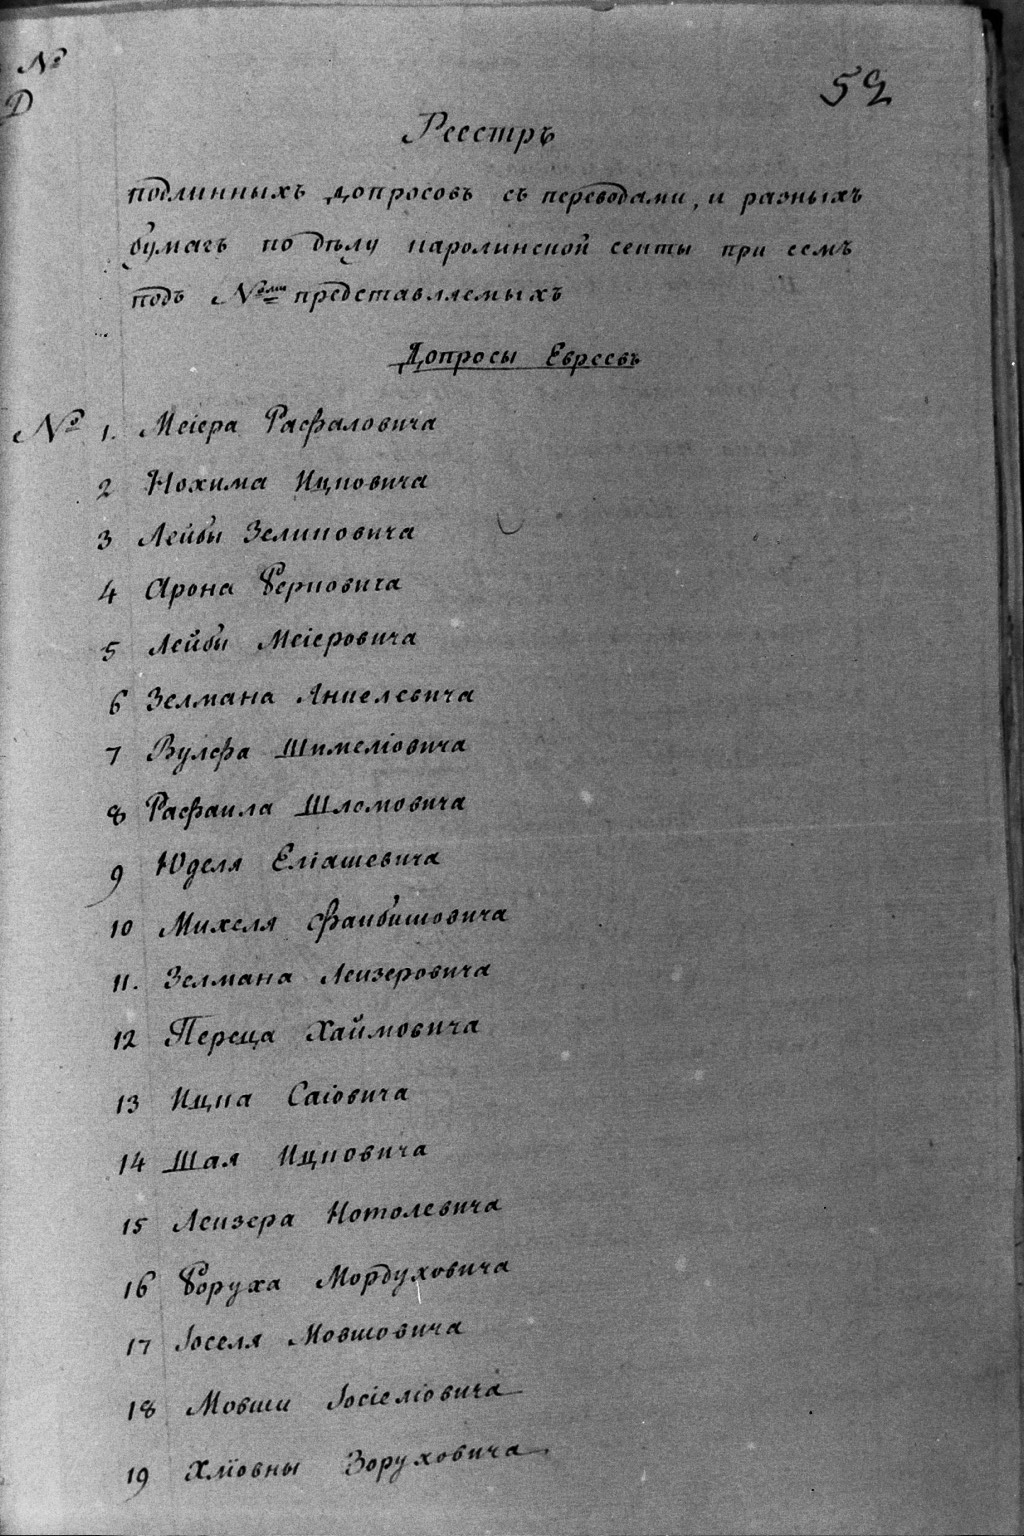 №
D
52
Реестръ
подлинныхъ допросовъ съ переводами, и разныхъ
бумагъ по дѣлу каролинской секты при семъ
подъ №ами представляемыхъ
Допросы Евреевъ
№ 1. Меіера Расфаловича
2 Нохима Ицковича
3 Лейбы Зеликовича
4 Арона Берковича
5 Лейбы Меіеровича
6 Зелмана Анкелевича
7 Вулфа Шимеліовича
8 Расфаила Шлемовича
9 Юделя Еліашевича
10 Михеля Фаибишовича
11. Зелмана Леизеровича
12 Переца Хаймовича
13 Ицка Саіовича
14 Шая Ицковича
15 Леизера Нотолевича
16 Боруха Мордуховича
17 Іоселя Мовшовича
18 Мовши Іосіеліовича
19 Зоруховича